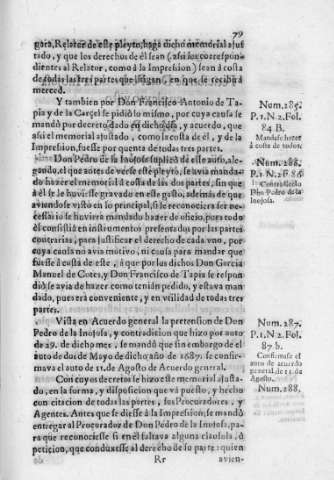 79
gara, Relator de este pleyto, haga dicho memorial ajus
tado, y que los derechos de él sean (assi los correspon-
dientes al Relator, como à la Impression) sean à costa
de todas las tres partes que litigan, en que se recibirà
merced.
Y tambien por Don Francisco Antonio de Ta-
pia y de la Carcel se pidiò lo mismo, por cuya causa se
mandò por decreto dado en dicho dia, y acuerdo, que
assi el memorial ajustado, como la costa de él, y de la
Impression, fuesse por quenta de todas tres partes.
Don Pedro de la Inojosa suplicò de este auto, ale-
gando, el que antes de verse este pleyto, se avia manda-
do hazer el memorial à costa de los dos partes, sin que
à él se le huviesse gravado en este gasto, demàs de que
aviendose visto en lo principal, si se reconociera ser ne-
cessario se huviera mandado hazer de oficio, pues todo
él consistia en instrumentos presentados por las partes
contrarias, para justificar el derecho de cada vno, por
cuya causa no avia motivo, ni causa para mandar que
fuesse à costa de este, à que por los dichos Don Garcia
Manuel de Cotes, y Don Francisco de Tapia se respon-
diò se avia de hazer como tenian pedido, y estava man
dado, pues era conveniente, y en vtilidad de todas tres
partes.
Vista en Acuerdo general la pretension de Don
Pedro de la Inojosa, y contradicion que hizo por auto
de 29. de dicho mes, se mandò que sin embargo de el
auto de dos de Mayo de dicho año de 1687. se confir-
mava el auto de 11. de Agosto de Acuerdo general.
Con cuyos decretos se hizo este memorial ajusta-
do, en la forma, y disposicion que và puesto, y hecho
con citacion de todas las partes, sus Procuradores, y
Agentes. Antes que se diesse à la Impression, se mandò
entregar al Procurador de Don Pedro de la Inojosa, pa-
ra que reconociesse si en él faltava alguna clausula, ò
peticion, que conduxesse al derecho de su parte: quien
Rr avien-
Num. 285.
P. 1. N. 2. Fol.
84. B.
Mandase hazer
à costa de todos.
Num. 286.
P. 1. N. 2. f. 86
Contradicelo
Don Pedro de la
Inojosa.
Num. 287.
P. 1. N. 2. Fol.
87. b.
Confirmase el
auto de acuerdo
general, de 11. de
Agosto.
Num. 288.